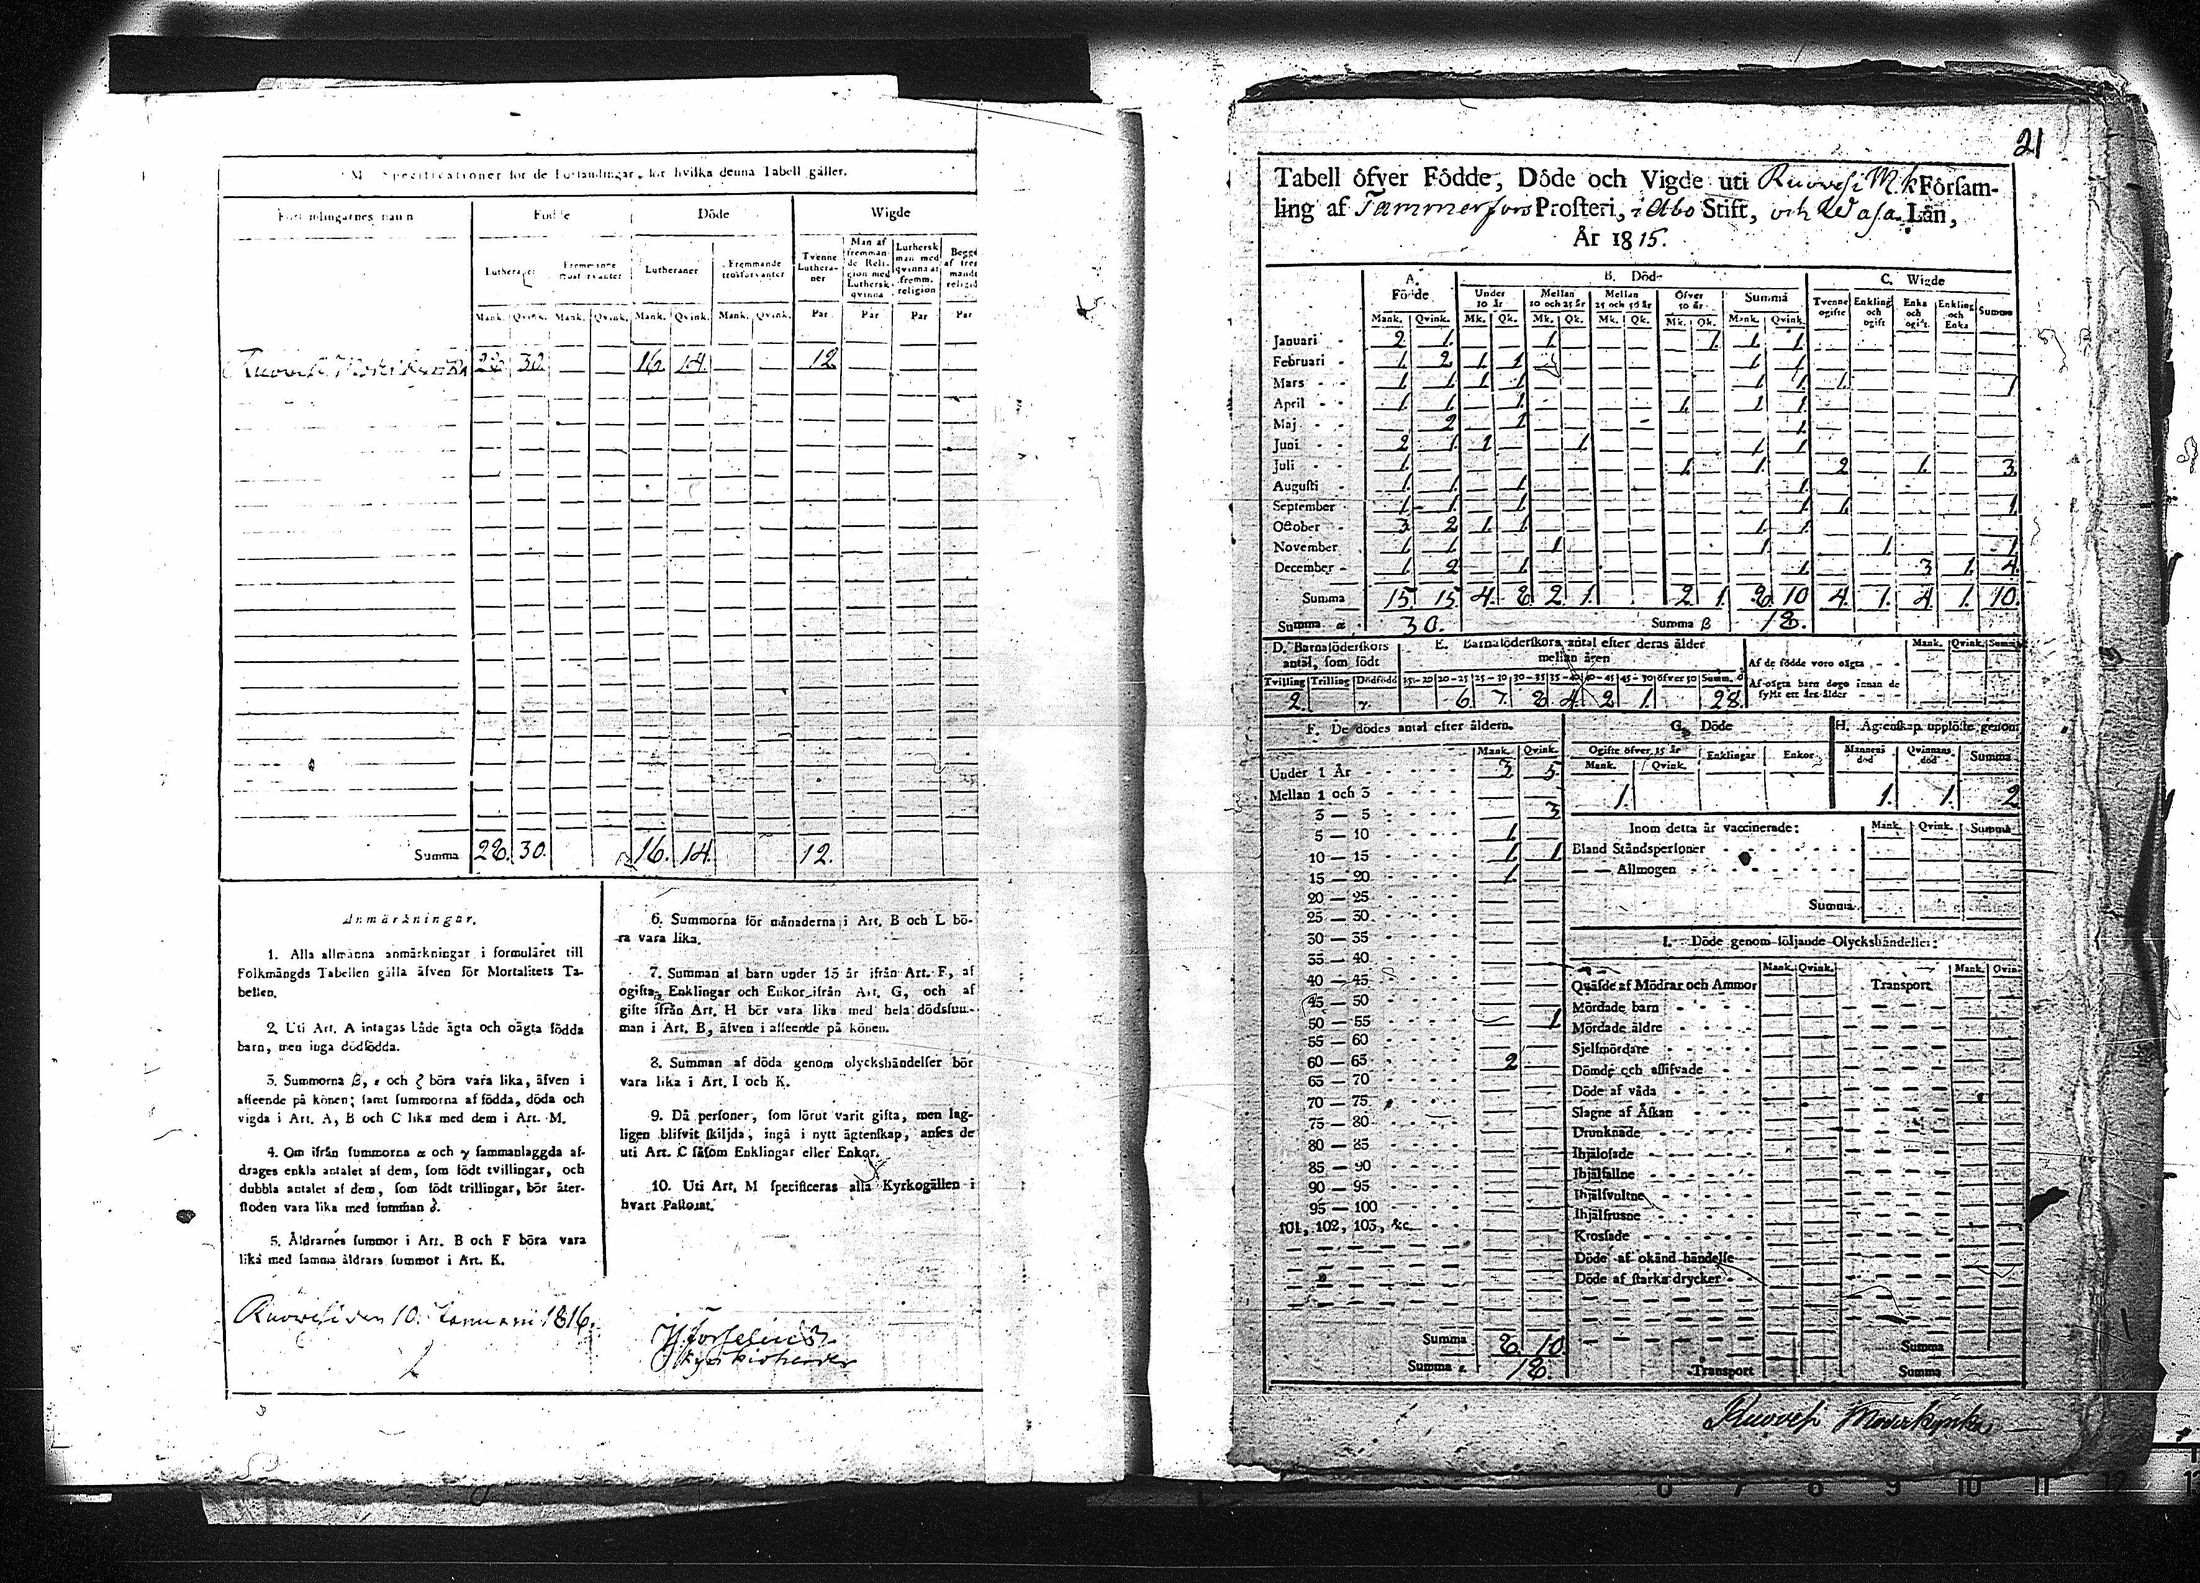 M. Specificationer för de Församlingar, för hvilka denna Tabell gäller.
Församlingarnes namn Födde Döde Wigde
Lutheraner Fremmande trosförvanter Lutheraner Fremmande trosförvanter Tvenne Lutheraner Man af fremmande Religion med Luthersk qvinna Luthersk man med qvinna af fremm. religion
Mank. Qvink. Mank. Qvink. Mank. Qvink. Mank. Qvink. Par Par Par Par
28 30. 16 14. 12.
Summa 28. 30. 16. 14. 12.
Anmärkningar.
1. Alla allmänna anmärkningar i formuläret till
Folkmängds Tabellen gälla äfven för Mortalitets Ta-
bellen.
2. Uti Art. A intagas både ägta och oägta födda
barn, men inga dödfödda.
3. Summorna β, ε och ζ böra vara lika, äfven i
afseende på könen; samt summorna af födda, döda och
vigda i Art. A, B och C lika med dem i Art. M.
4. Om ifrån summorna α och γ sammanlaggda af-
drages enkla antalet af dem, som födt tvillingar, och
dubbla antalet af dem, som födt trillingar, bör åter-
stoden vara lika med summan δ.
5. Åldrarnes summor i Art. B och F böra vara
lika med samma åldrars summor i Art. K.
6. Summorna för månaderna i Art. B och L bö-
ra vara lika.
7. Summan af barn under 15 år ifrån Art. F, af
ogifta, Enklingar och Enkor ifrån Art. G, och af
gifte ifrån Art. H bör vara lika med hela dödssum-
man i Art. B, äfven i afseende på könen.
8. Summan af döda genom olyckshändelser bör
vara lika i Art. I och K.
9. Då personer, som förut varit gifta, men lag-
ligen blifvit skiljda, ingå i nytt ägtenskap, anses de
uti Art. C såsom Enklingar eller Enkor.
10. Uti Art. M specificeras alla Kyrkogällen i
hvart Pastorat.
Ruovesi den 10. Januarii 1816.
Kyrkioherde
21
Tabell öfver Födde, Döde och Vigde uti Ruovesi Mk Församling
af Tammerfors Prosteri, i Abo Stift, och Wasa Län,
År 1815.
A. Födde B. Döde C. Wigde
Under 10 år Mellan 10 och 25 år Mellan 25 och 50 år Öfver 50 år Summa Tvenne ogifte Enkling och ogift Enka och ogift. Enkling och Enka Summa
Mank. Qvink. Mk. Qk. Mk. Qk. Mk. Qk. Mk. Qk. Mank. Qvink.
Januari 2 1. 1. 1. 1. 1.
Februari 1. 2 1. 1. 1. 1.
Mars 1. 1. 1. 1. 1. 1. 1. 1.
April 1. 1. 1. 1. 1. 1.
Maj 2 1. 1.
Juni 2 1. 1. 1. 1. 1.
Juli 1. 1. 1. 2 1. 3.
Augusti 1. 1. 1. 1.
September 1. 1. 1. 1. 1. 1.
October 3 2 1. 1. 1. 1.
November 1. 1. 1. 1. 1. 1.
December 1. 2 1. 1. 3 1. 4.
Summa 15 15. 4. 8 2. 1. 2. 1. 8. 10 4. 1. 4. 1. 10.
Summa α 30. Summa β 18.
D. Barnaföderskors antal, som födt E. Barnaföderskors antal efter deras ålder mellan åren
Tvilling Trilling Dödfödd 15-20 20-25 25-30 30-35 35-40 40-45 45-50 öfver 50 Summ. δ Mank. Qvink. Summa
2. 6. 7. 8 4. 2 1. 28.
Af de födde voro oägta
Af oägta barn dogo innan de
fyllt ett års ålder
F. De dödes antal efter åldern. G. Döde H. Ägtenskap upplöste genom
Mank. Qvink. Ogifte öfver 15 år Mank. Qvink. Enklingar Enkor Mannens död Qvinnans död Summa
1. 1. 1. 2
Under 1 År 3. 5.
Mellan 1 och 3
3 — 5 3
5 — 10 1.
10 — 15 1. 1
15 — 20 1.
20 — 25
25 — 30
30 — 35
35 — 40
40 — 45
45 — 50
50 — 55 1
55 — 60
60 — 65 2
65 — 70
70 — 75
75 — 80
80 — 85
85 — 90
90 — 95
95 — 100
101, 102, 103, &c.
Summa 8. 10
Summa ε 18.
Inom detta år vaccinerade: Mank. Qvink. Summa
Bland Ståndspersoner
— — Allmogen
Summa
I. Döde genom följande Olyckshändelser:
Mank. Qvink. Mank. Qvink.
Qväfde af Mödrar och Ammor Transport
Mördade barn
Mördade äldre
Sjelfmördare
Dömde och aflifvade
Döde af våda
Slagne af Åskan
Drunknade
Ihjälosade
Ihjälfallne
Ihjälsvultne
Ihjälfrusne
Krossade
Döde af okänd händelse
Döde af starka drycker
Summa
Transport Summa
Ruovesi Moderkyrka